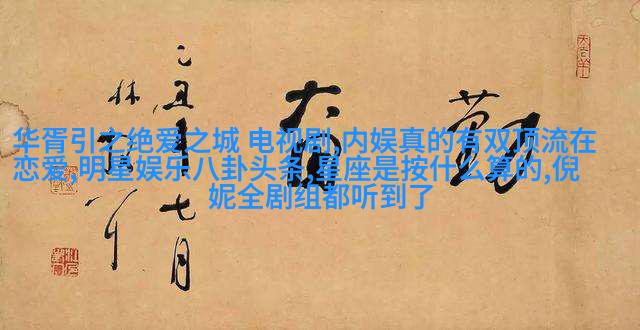 华胥引之绝爱之城 电视剧,内娱真的有双顶流在
恋爱,明星娱乐八卦头条,星座是按什么算的,倪
妮全剧组都听到了
勤
奋
乙丑年七月
林散耳